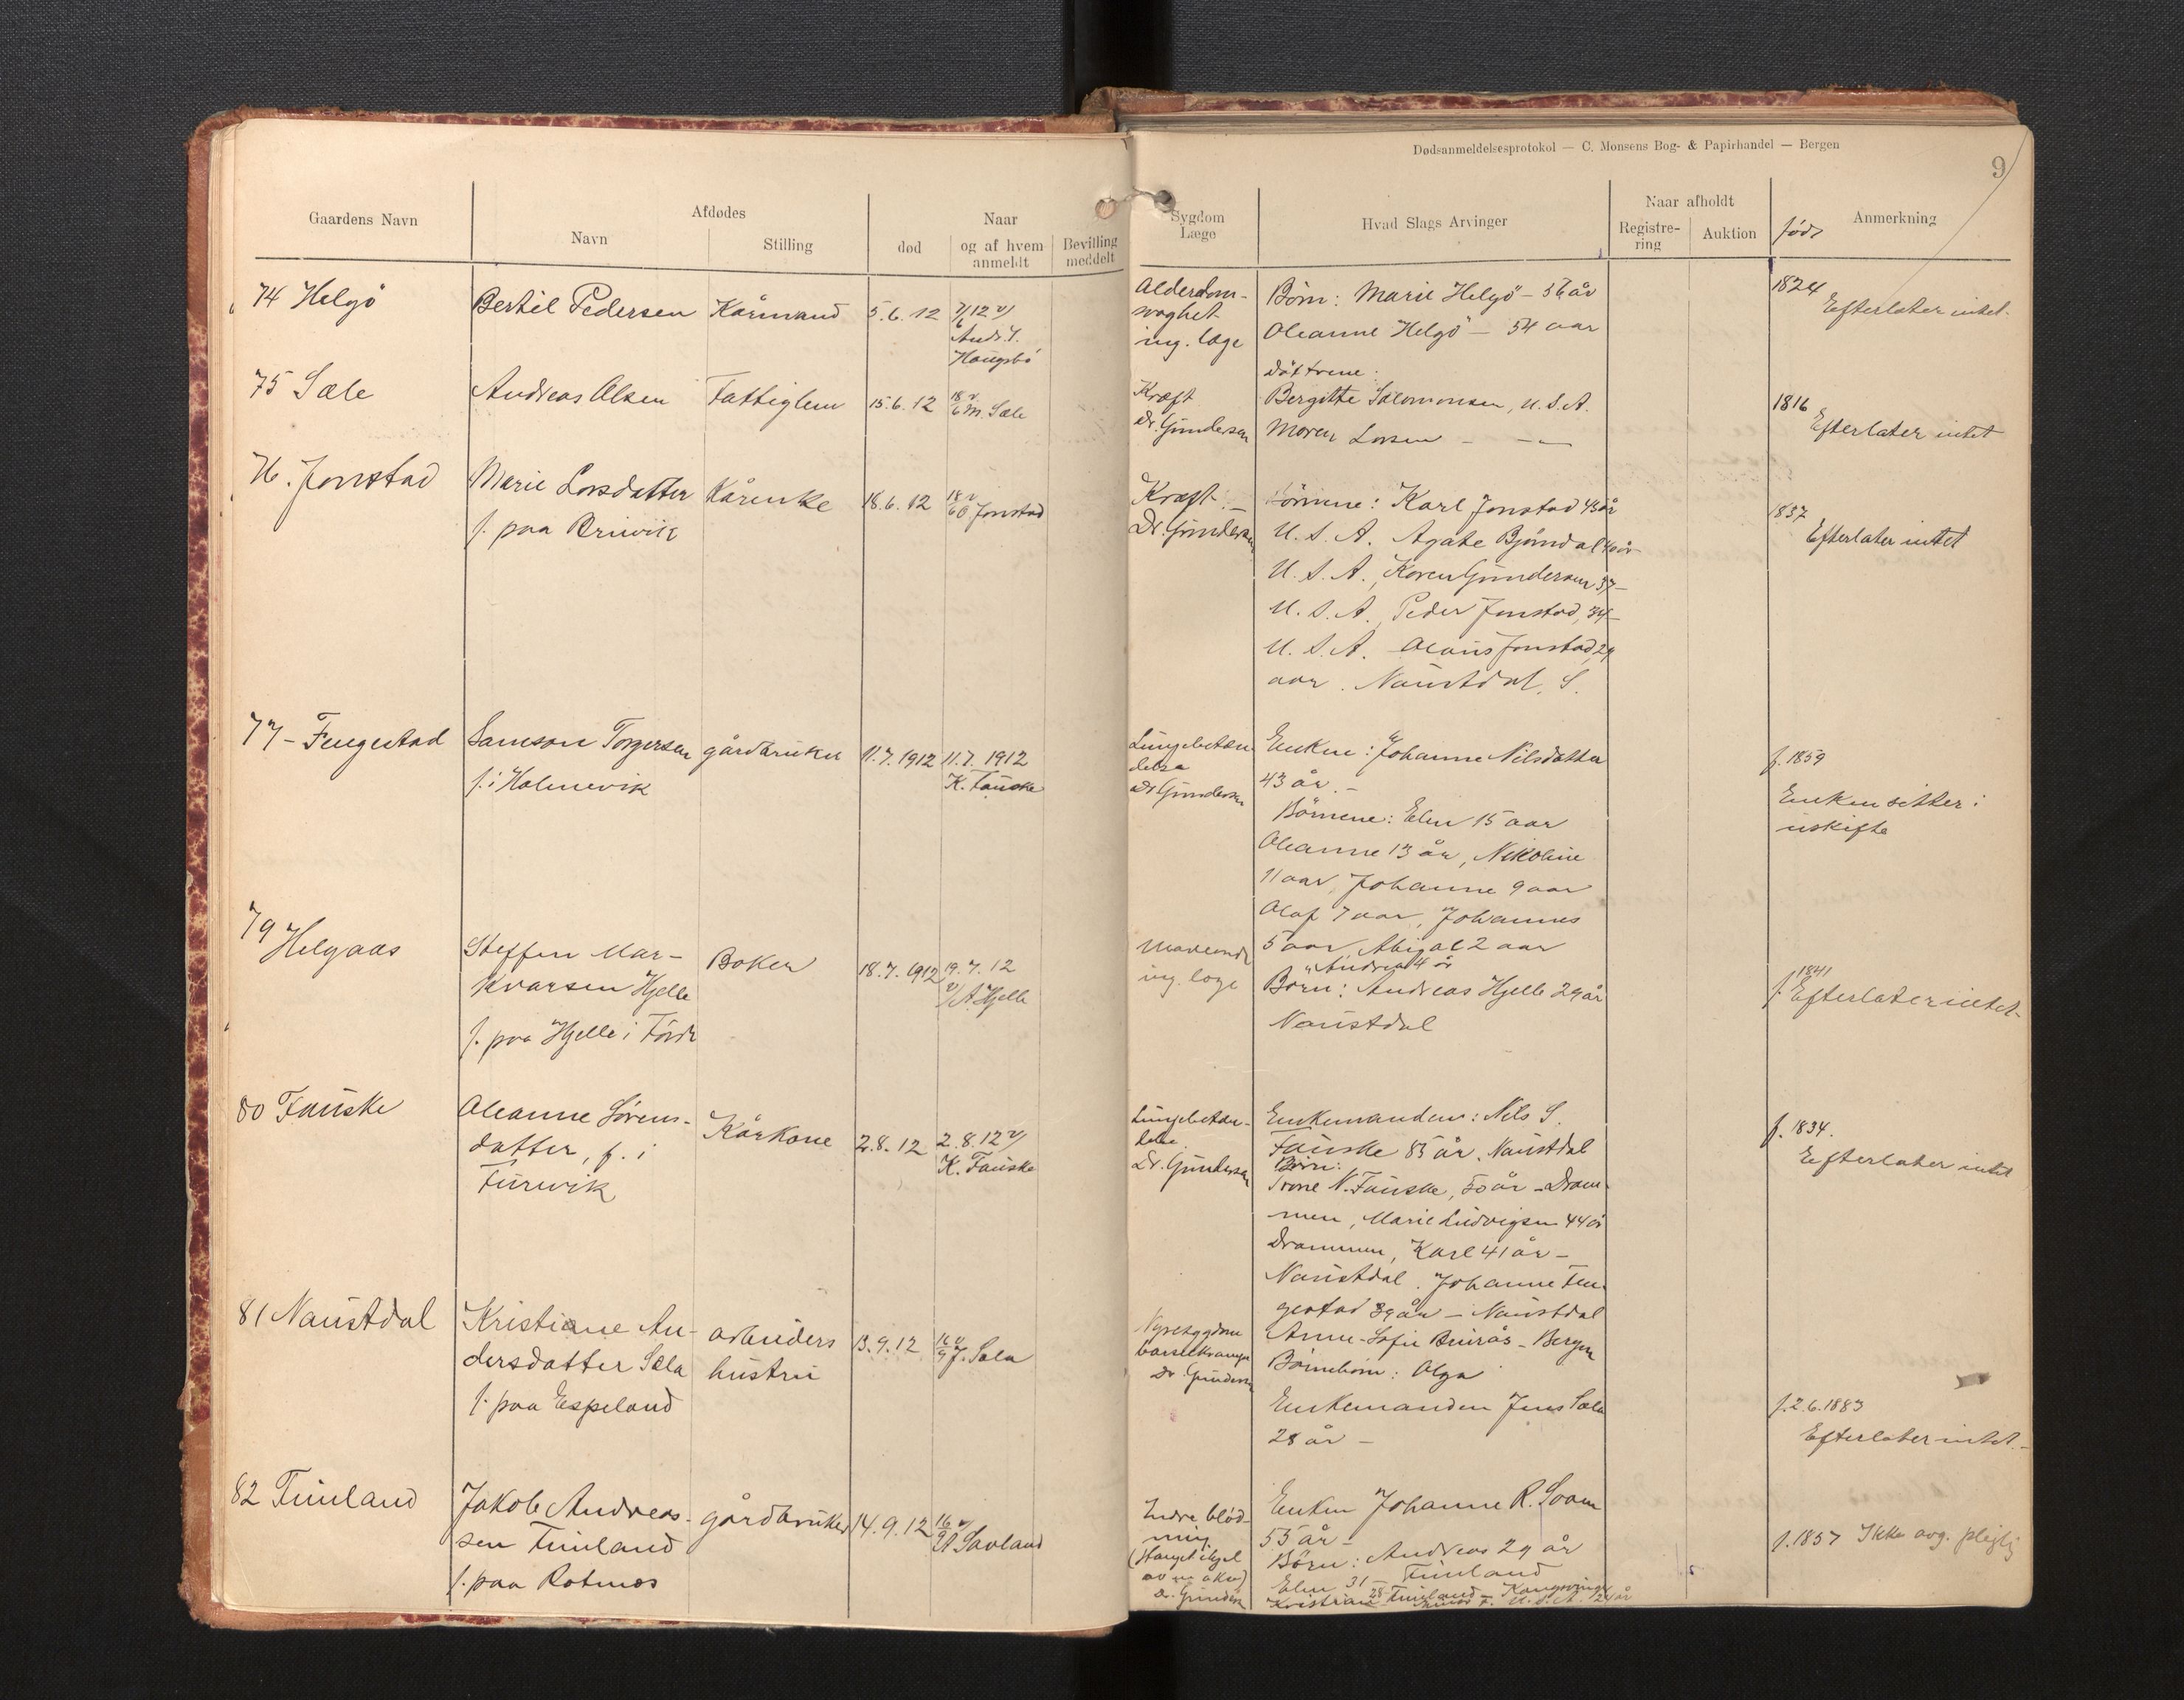 Dødsanmeldelsesprotokol — C. Monsens Bog- & Papirhandel — Bergen
9
Gaardens Navn
Afdødes
Navn
Stilling
død
Naar
og af hvem
anmeldt
Bevilling
meddelt
Sygdom
Læge
Hvad Slags Arvinger
Naar afholdt
Registre-
ring
Auktion
født
Anmerkning
74 Helgö
Bertil Pedersen
Kårmand
5.6.12
7/6 12 v/
And. S.
Haugsbö
Alderdom-
svaghet
ing. læge
Börn: Marie Helgö - 56 år
Oleanne Helgö - 54 aar
1824
Efterlater intet.
75 Sæle
Andreas Olsen
Fattiglem
15.6.12
18/6 v
M. Sæle
Kræft
Dr. Gundersen
Døttrene:
Bergitte Salomonsen, U.S.A.
Maren Larsen - - -
1816
Efterlater intet
76. Jonstad
Marie Larsdatter
f. paa
Kårenke
18.6.12
18/6 v
O Jonstad
Kræft.-
Dr. Gundersen
Börnene: Karl Jonstad 43 år
U.S.A. Agate Bjørndal 40 år
U.S.A., Karen Gundersen 37-
U.S.A., Peder Jonstad, 34-
U.S.A. Olaus Jonstad, 29
aar. Naustdal, S.
1837
Efterlater intet
77- Fengestad
Samson Torgersen
f. i Holmevik
gårdbruker
11.7.1912
11.7.1912
K. Fauske
Lungebeten-
delse
Dr Gundersen
Enken: Johanne Nilsdatter
43 år.-
Börnene: Elen 15 aar
Oleanne 13 år, Nikoline
11 aar, Johanne 9 aar
Olaf 7 aar, Johannes
5 aar Abigal 2 aar
Andrea 4 år
f. 1859
Enken sitter i
uskifte
79
Helgaas
Steffen Mar-
kvarsen Hjelle
f. paa Hjelle i Förde
Baker
18.7.1912
19.7.12
v/ A. Hjelle
Maveonde
ing. læge
Börn: Andreas Hjelle 29 år
Naustdal
f. 1841
Efterlater intet-
80 Fauske
Oleanne Sørens-
datter, f. i
Furevik
Kårkone
2.8.12
2.8.12 v/
K. Fauske
Lungebeten-
delse.
Dr. Gundersen
Enkemanden: Nils S.
Fauske 85 år. Naustdal
Börn:
N. Fauske, 50 år - Dram-
men, Marie Ludvigsen 44 år
Drammen, Karl 41 år -
Naustdal. Johanne Fen-
gestad 39 år - Naustdal
Anne-Sofie - Bergen
Börnebörn: Olga
f. 1834.
Efterlater intet
81 Naustdal
Kristiane An-
dersdatter Sæla
f. paa Espeland
arbeiders
hustru
13.9.12
16/9 v
J. Sæla
Nyresygdom
barselkrampe
Dr. Gundersen
Enkemanden Jens Sæla
28 år -
f. 2.6.1883
Efterlater intet.-
82 Tuuland
Jakob Andreas-
sen Tuuland
f. paa Rotmos
gårdbruker
14.9.12
16/9 v/
A Savland
Indre blød-
ning
Dr. Gundersen
Enken Johanne R.
55 år -
Börn: Andreas 29 år
Tuuland
Elen 31 Tuuland - Kongsvinger
Kristian 28 U.S.A. 24 år
f. 1857 Ikke avg. pligtig